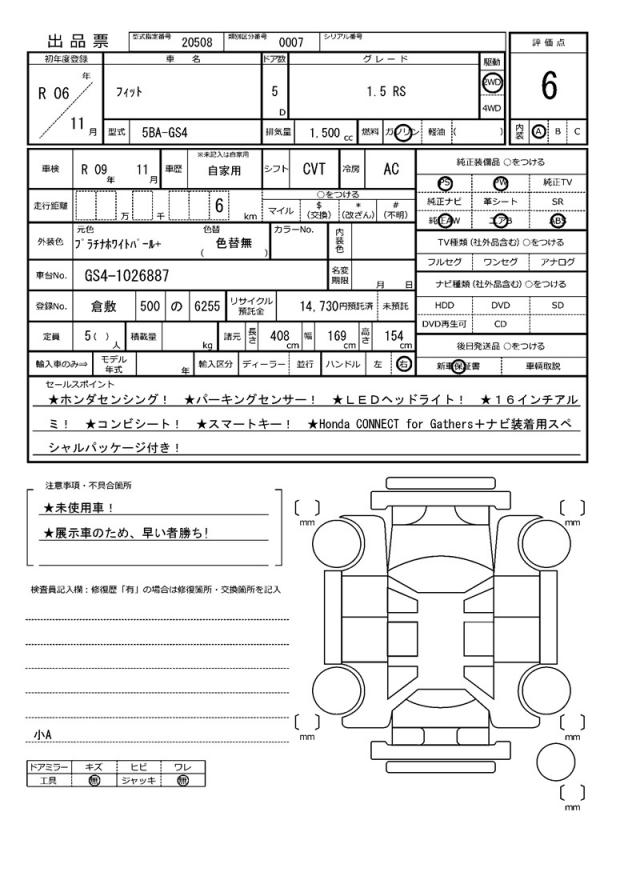 出品票
型式指定番号 20508 類別区分番号 0007 シリアル番号
評価点
6
内装 A B C
初年度登録 車名 ドア数 グレード 駆動
R 06 年 11 月 フィット 5 D 1.5 RS 2WD 4WD
型式 5BA-GS4 排気量 1.500 cc 燃料 ガソリン 軽油 ( )
車検 R 09 年 11 月 車歴 ※未記入は自家用 自家用 シフト CVT 冷房 AC
走行距離 万 千 6 km ○をつける
マイル $ (交換) * (改ざん) # (不明)
外装色 元色 プラチナホワイトパール+ 色替 ( 色替無 ) カラーNo. 内装色
車台No. GS4-1026887 名変期限 月 日
登録No. 倉敷 500 の 6255 リサイクル預託金 14,730円預託済 未預託
定員 5( ) 人 積載量 kg 諸元 長さ 408 cm 幅 169 cm 高さ 154 cm
輸入車のみ⇒ モデル年式 年 輸入区分 ディーラー 並行 ハンドル 左 右
純正装備品 ○をつける
PS PW 純正TV
純正ナビ 革シート SR
純正AW エアB ABS
TV種類 (社外品含む) ○をつける
フルセグ ワンセグ アナログ
ナビ種類 (社外品含む) ○をつける
HDD DVD SD
DVD再生可 CD
後日発送品 ○をつける
新車保証書 車輌取説
セールスポイント
★ホンダセンシング！ ★パーキングセンサー！ ★ＬＥＤヘッドライト！ ★１６インチアル
ミ！ ★コンビシート！ ★スマートキー！ ★Honda CONNECT for Gathers＋ナビ装着用スペ
シャルパッケージ付き！
注意事項・不具合箇所
★未使用車！
★展示車のため、早い者勝ち!
検査員記入欄：修復歴「有」の場合は修復箇所・交換箇所を記入
小A
ドアミラー キズ ヒビ ワレ
工具 無 ジャッキ 無
mm
mm
mm
mm
mm